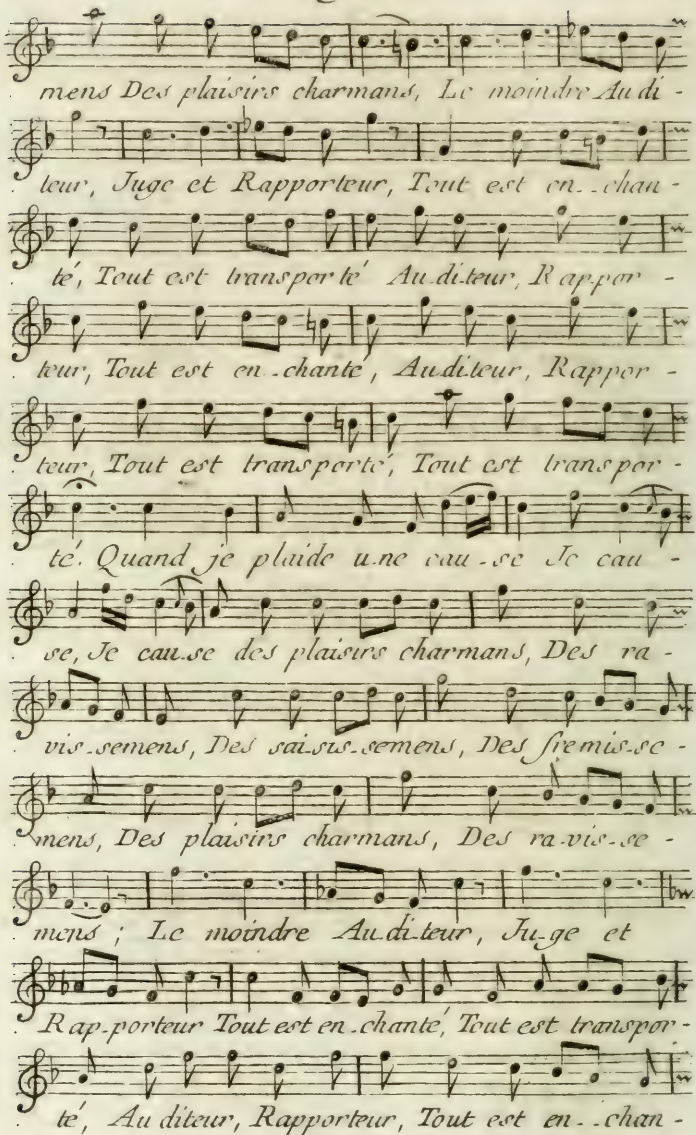 mens Des plaisirs charmans, Le moindre Au di -
teur, Juge et Rapporteur, Tout est en-.chan -
té, Tout est transporté Au.diteur, Rappor -
teur, Tout est en-chanté, Auditeur, Rappor -
teur, Tout est transporté, Tout est transpor -
té. Quand je plaide u.ne cau-se Je cau -
se, Je cau.se des plaisirs charmans, Des ra -
vis-semens, Des sai-sis-semens, Des fremis-se -
mens, Des plaisirs charmans, Des ra-vis-se -
mens ; Le moindre Au.di.teur, Ju-ge et
Rap-porteur Tout est en-chanté, Tout est transpor-
té, Au diteur, Rapporteur, Tout est en-.chan -